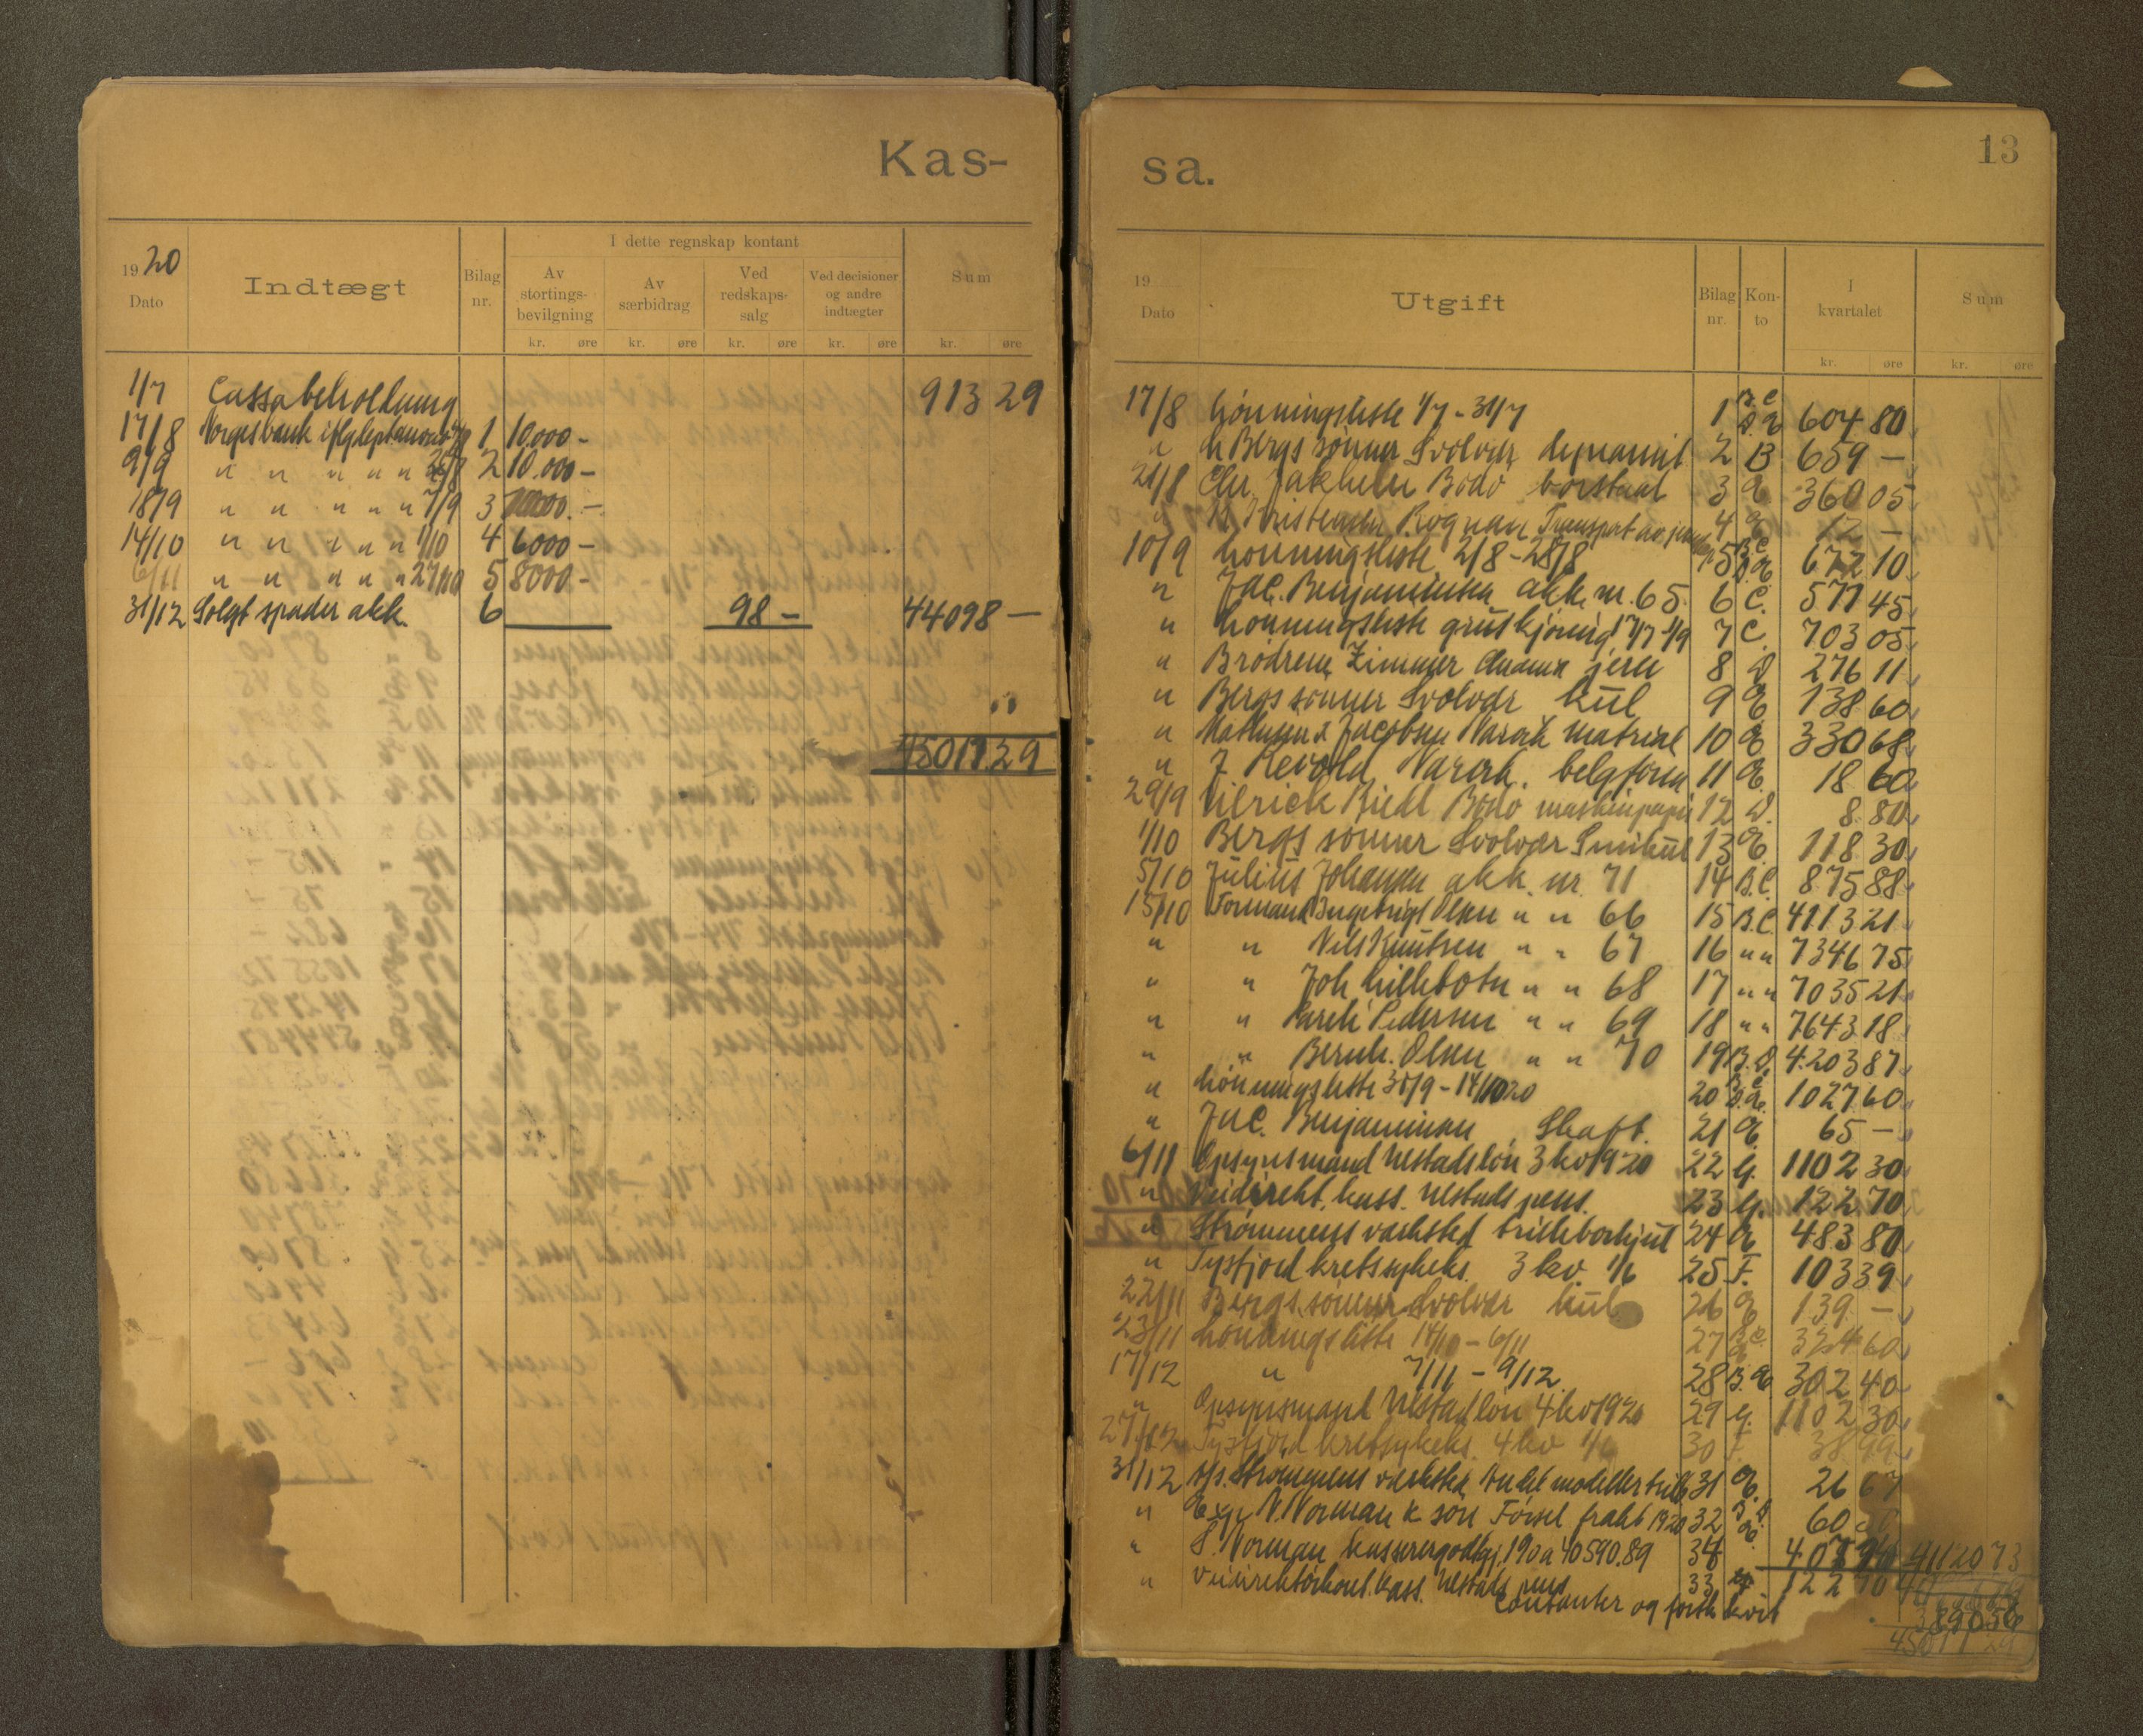 Kas-
1920
Dato
Indtægt
Bilag nr.
I dette regnskap kontant
Av stortings-bevilgning
Av særbidrag
Ved redskaps-salg
Ved decisioner og andre indtægter
Sum
kr. øre kr. øre kr. øre kr. øre kr. øre
1/7 Cassabeholdning 913 29
17/8 Norgesbank 1 10.000 -
9/9 " " " " " 26/8 2 10.000 -
18/9 " " " " " 7/9 3
14/10 " " " " " 1/10 4 6000 -
6/11 " " " " " 27/10 5 8000 -
31/12 Solgt spader akk. 6 98 - 44098 -
45011.29
sa.
13
19
Dato
Utgift
Bilag nr.
Kon-to
I kvartalet
Sum
kr. øre kr. øre
17/8 Lønningsliste 1/7 - 31/7 1 604 80
" L Bergs sønner Svolvær dynamit 2 B 659 -
21/8 Chr. Jakhelln Bodø borstaal 3 360 05
" Rognan Transport av 4 12 -
10/9 Lønningsliste 2/8 - 28/8 5 672 10
" Jac. Benjaminsen akk. nr. 65 6 C. 577 45
" Lønningsliste gruskjøring 17/7 - 1/9 7 C. 703 05
" Brødrene Zimmer jern 8 D 276 11
" Bergs sønner Svolvær kul 9 138 60
" & Jacobsen Narvik matrial 10 330 68
" J Narvik. 11 18 60
29/9 Bodø maskinpapir 12 D. 8 80
1/10 Bergs sønner Svolvær Smikul 13 118 30
5/10 Julius Johansen akk. nr. 71 14 B.C. 875 88
15/10 Formand Ingebrigt Olsen " " 66 15 B.C. 4113 21
" " Nils Knutsen " " 67 16 " " 7346 75
" " Joh Lillebotn " " 68 17 " " 7035 21
" " Pedersen " " 69 18 " " 7643 18
" " Bernh. Olsen " " 70 19 B.D. 4203 87
" Lønningsliste 30/9 - 14/10 20 20 1027 60
" Jac. Benjaminsen Skaft. 21 65 -
6/11 Opsynsmand Ulstads løn 3 kv 1920 22 G. 1102 30
" Veidirekt. kass. Ulstads pens. 23 G. 122 70
" Strømmens værksted trillebørhjul 24 483 80
" Tysfjord kretssykeks. 3 kv. 1/6 25 F. 103 39
22/11 Bergs sønner Svolvær kul 26 139 -
23/11 Lønningsliste 14/10 - 6/11 27 324 60
17/12 " 7/11 - 9/12 28 302 40
" Opsynsmand Ulstad løn 4 kv 1920 29 G. 1102 30
27/12 Tysfjord kretssykeks. 4 kv 1/6 30 F. 38 99
31/12 Strømmens værksted 31 26 67
" N. Norman & søn Førsel frakt 1920 32 60
" S. Norman kasserergodtgj. 1% a 40590.89 34 41120 73
" Veidirektørkont. kass. Ulstads pens 33 122 70
Contanter og forsk kvit
3890 56
45011 29